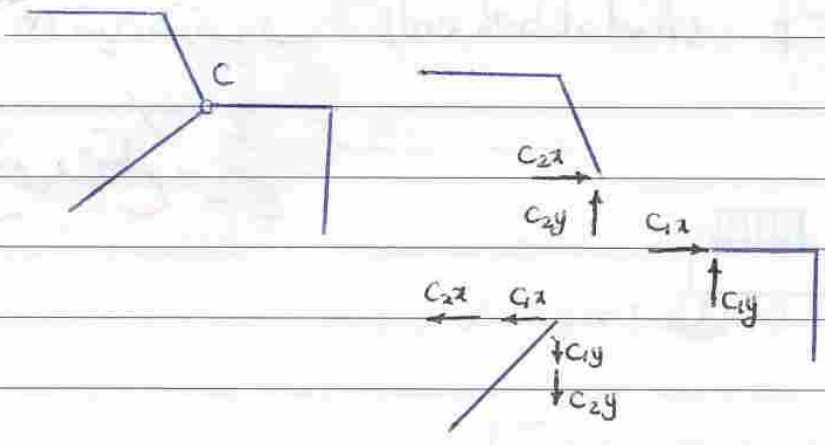 C
C₂x
C₂y
C₁x
C₁y
C₂x C₁x
C₁y
C₂y